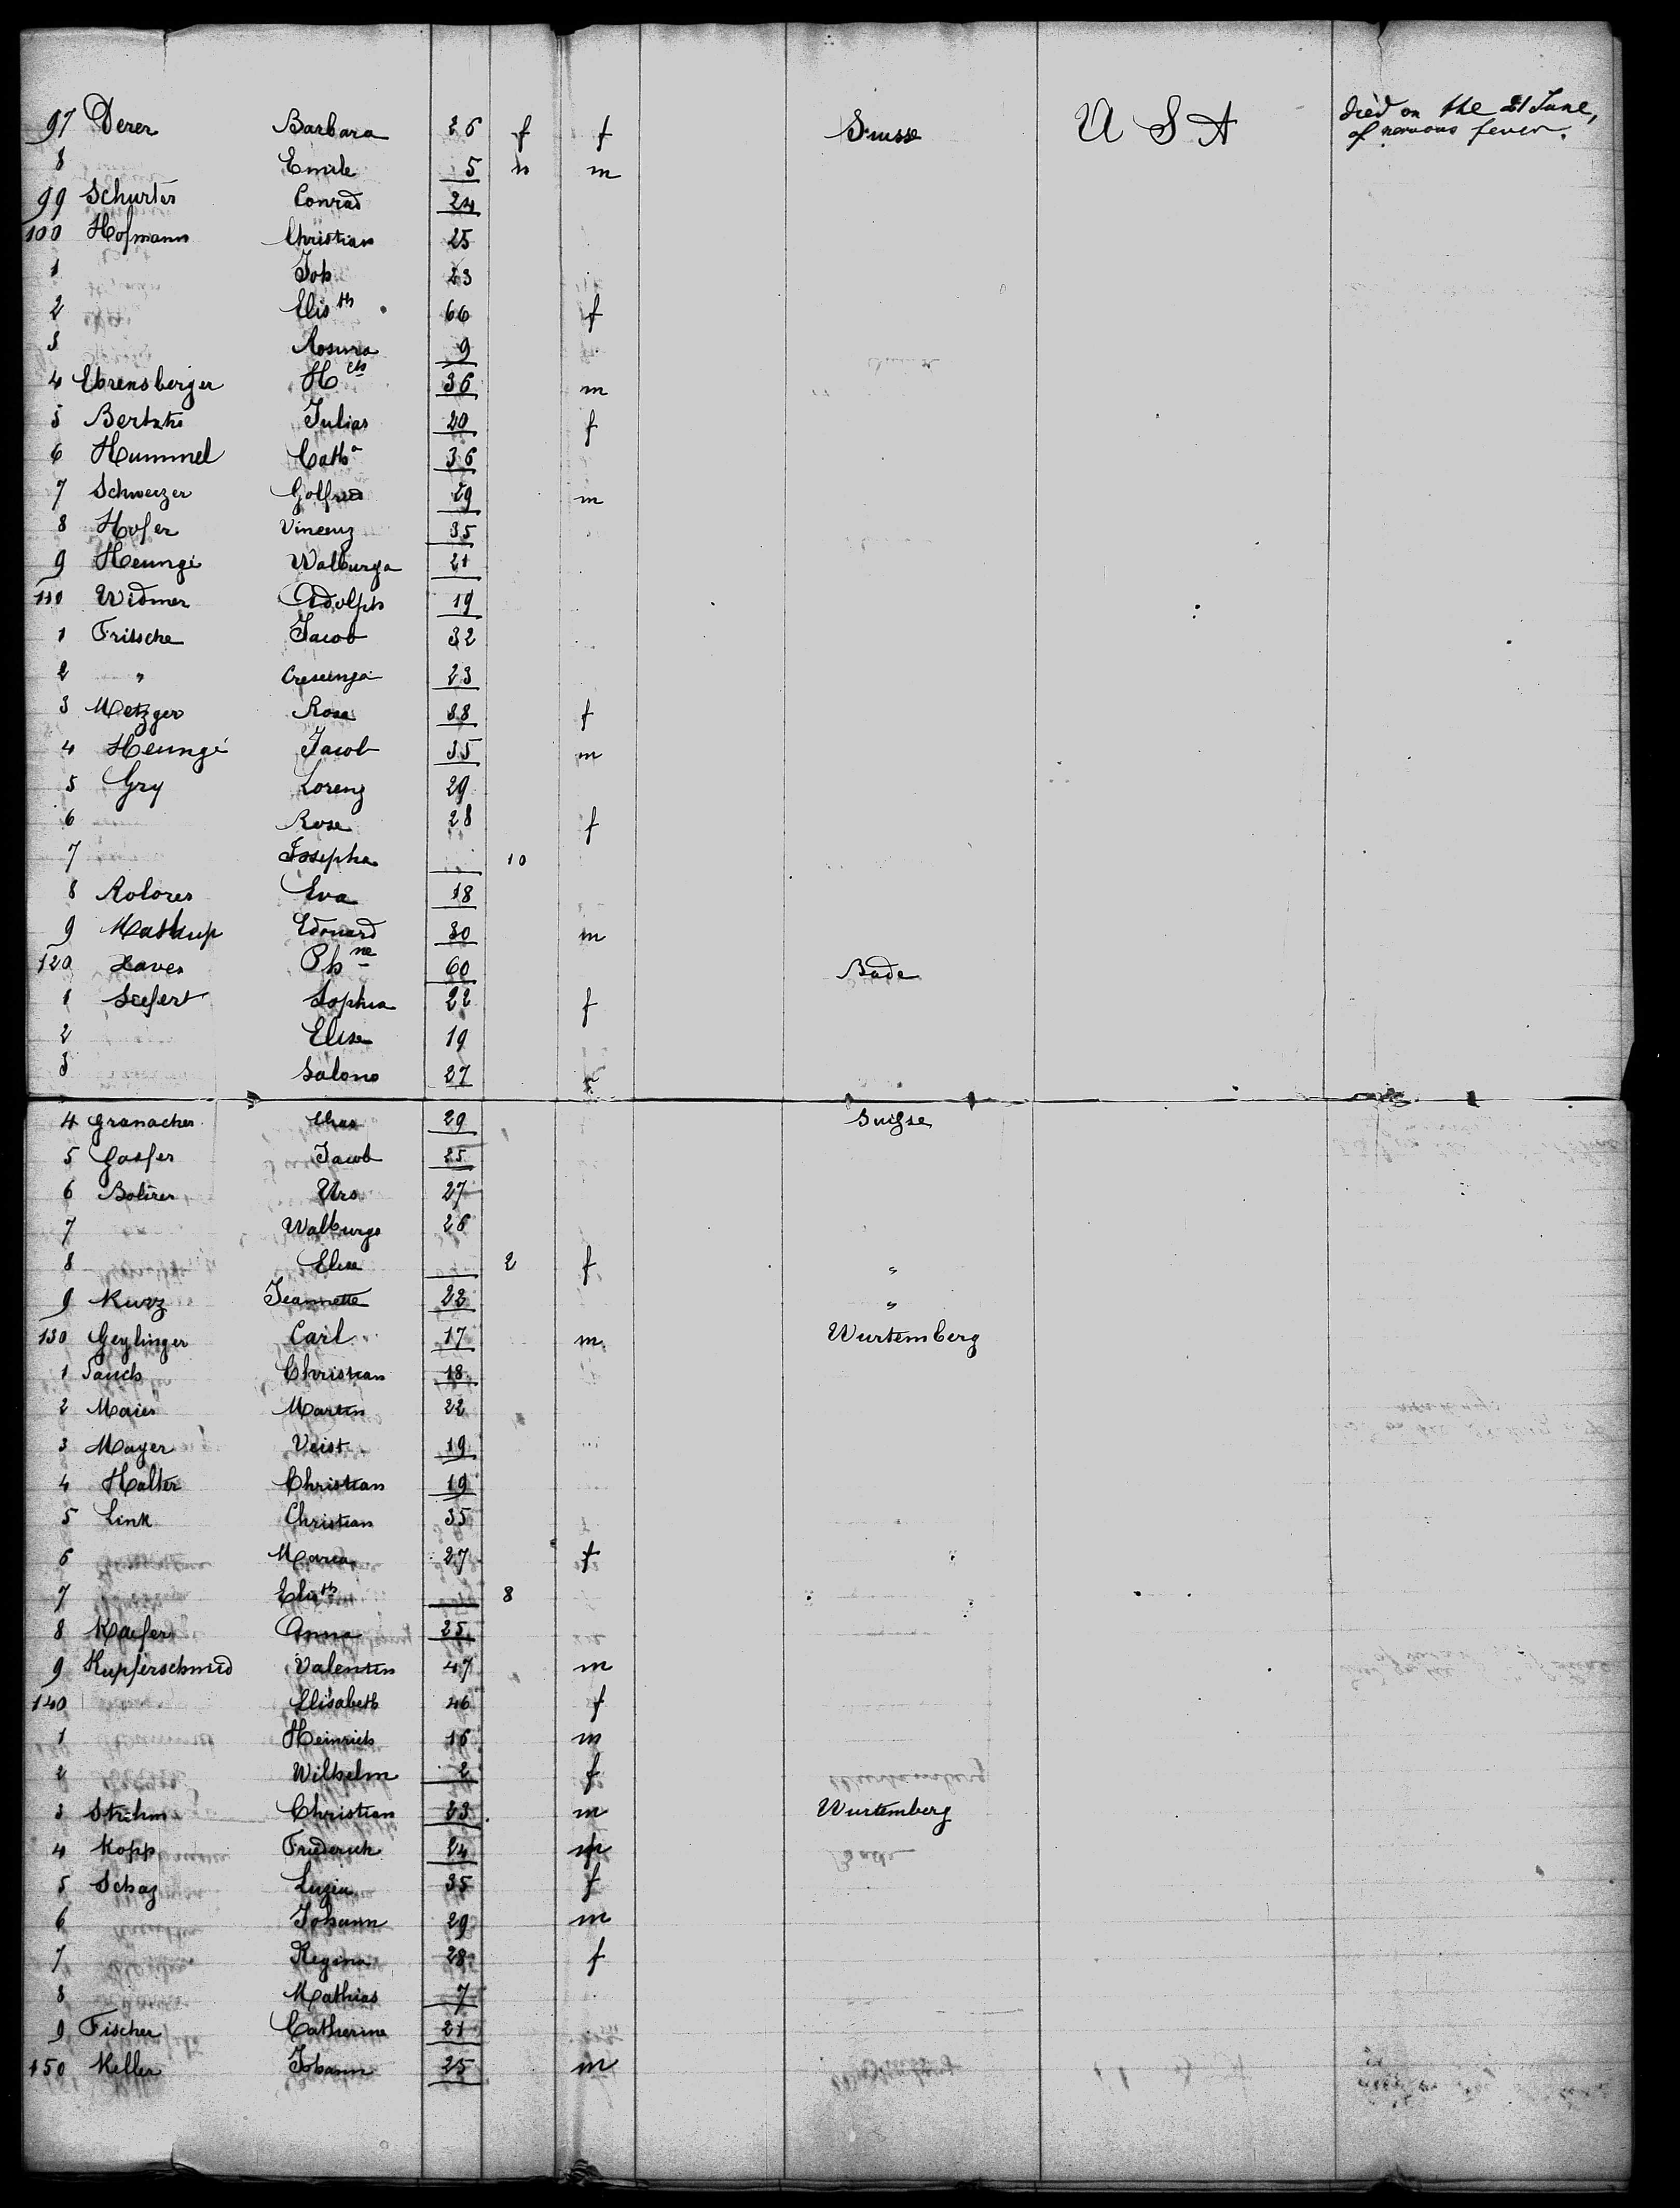 97 Derer Barbara 26 f f Suisse U S A died on the 21 June,
of nervous fever.
8 Emile 5 m
99 Schurter Conrad 24
100 Hofmann Christian 25
1 Joh 23
2 Elisth 66 f
3 Rosina 9
4 Ehrensberger Hch 36 m
5 Julias 20 f
6 Hummel Catha 36
7 Schweizer Golfried 29 m
8 Hofer Vincenz 35
9 Heungi Walburga 21
110 Widmer Adolph 19
1 Fritsche Jacob 32
2 " 23
3 Metzger Rosa 38 f
4 Heungi Jacob 35 m
5 Gry Lorenz 29
6 Rosa 28 f
7 Josepha 10
8 Rolores Eva 18
9 Edouard 30 m
120 Xaver 60 Bade
1 Seefert Sophia 22 f
2 Elise 19
3 Salono 27
4 Granacher 29 Suisse
5 Gasser Jacob 25
6 Urs 27
7 Walburga 26
8 Elise 2 f "
9 Kurz Jeannette 22 "
130 Geylinger Carl 17 m Wurtemberg
1 Christian 18
2 Maier Martin 22
3 Mayer Veist 19
4 Halter Christian 19
5 Link Christian 35
6 Maria 27 f
7 Elisth 8
8 Kaefer Anna 25
9 Kupferschmid Valentin 47 m
140 Elisabeth 46 f
1 Heinrich 16 m
2 Wilhelm 2 f
3 Christian 23 m Wurtemberg
4 Kopp Friederich 24 m
5 Schaz Luzia 35 f
6 Johann 29 m
7 Regina 28 f
8 Mathias 7
9 Fischer Catherine 21
150 Keller Johann 25 m